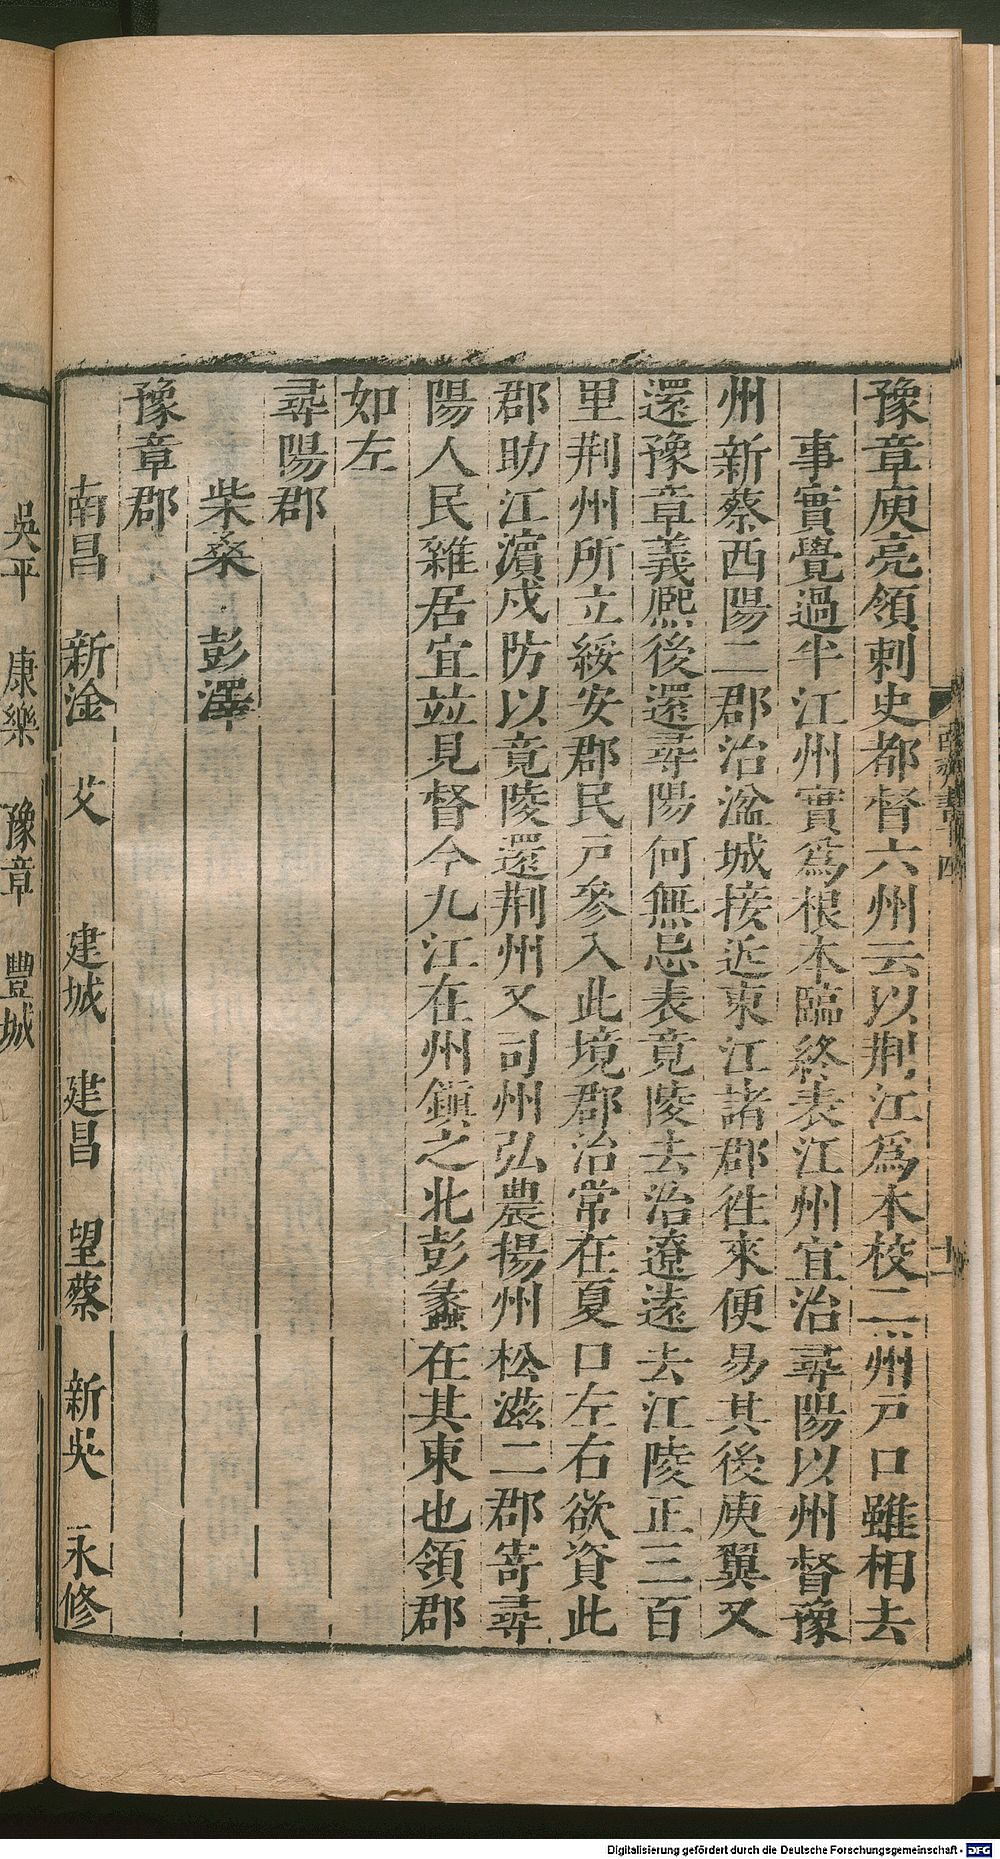 豫章庾亮領刺史都督六州云以荆江爲本校二州戸口雖相去
事實覺過半江州實爲根本臨終表江州宜治尋陽以州督豫
州新蔡西陽二郡治湓城接近東江諸郡徃來便易其後庾翼又
還豫章義熈後還尋陽何無忌表竟陵去治遼遠去江陵正三百
里荆州所立綏安郡民戸參入此境郡治常在夏口左右欲資此
郡助江濵戍防以竟陵還荆州又司州弘農揚州松滋二郡寄尋
陽人民雜居宜竝見督今九江在州鎮之北彭蠡在其東也領郡
如左
尋陽郡
柴桑 彭澤
豫章郡
南昌 新淦 艾 建城 建昌 望蔡 新吳 永修
吳平 康樂 豫章 豐城
Digitalisierung gefördert durch die Deutsche Forschungsgemeinschaft - DFG